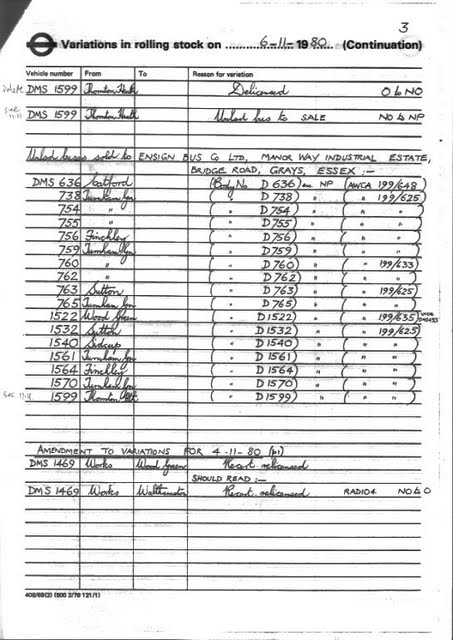 3
Variations in rolling stock on 6-11-1980 (Continuation)
Vehicle number From To Reason for variation
DMS 1599 Thornton Heath Delicensed O to NO
DMS 1599 Thornton Heath Unlscd bus to SALE NO to NP
Unlscd buses sold to ENSIGN BUS Co LTD, MANOR WAY INDUSTRIAL ESTATE,
BRIDGE ROAD, GRAYS, ESSEX :—
DMS 636 Catford (Body No D 636) ex NP (AWCA 199/648)
738 Turnham Grn ( " D 738) " ( " 199/625)
754 " ( " D 754) " ( " " )
755 " ( " D 755) " ( " " )
756 Finchley ( " D 756) " ( " " )
759 Turnham Grn ( " D 759) " ( " " )
760 " ( " D 760) " ( " 199/633)
762 " ( " D 762) " ( " " )
763 Sutton ( " D 763) " ( " 199/625)
765 Turnham Grn ( " D 765) " ( " " )
1522 Wood Green ( " D 1522) " ( " 199/635)
1532 Sutton ( " D 1532) " ( " 199/625)
1540 Sidcup ( " D 1540) " ( " " )
1561 Turnham Grn ( " D 1561) " ( " " )
1564 Finchley ( " D 1564) " ( " " )
1570 Turnham Grn ( " D 1570) " ( " " )
1599 Thornton Hth ( " D 1599) " ( " " )
AMENDMENT TO VARIATIONS FOR 4-11-80 (p1)
DMS 1469 Works Wood Green Recert. relicensed
SHOULD READ :—
DMS 1469 Works Walthamstow Recert. relicensed RADIO4 NO to O